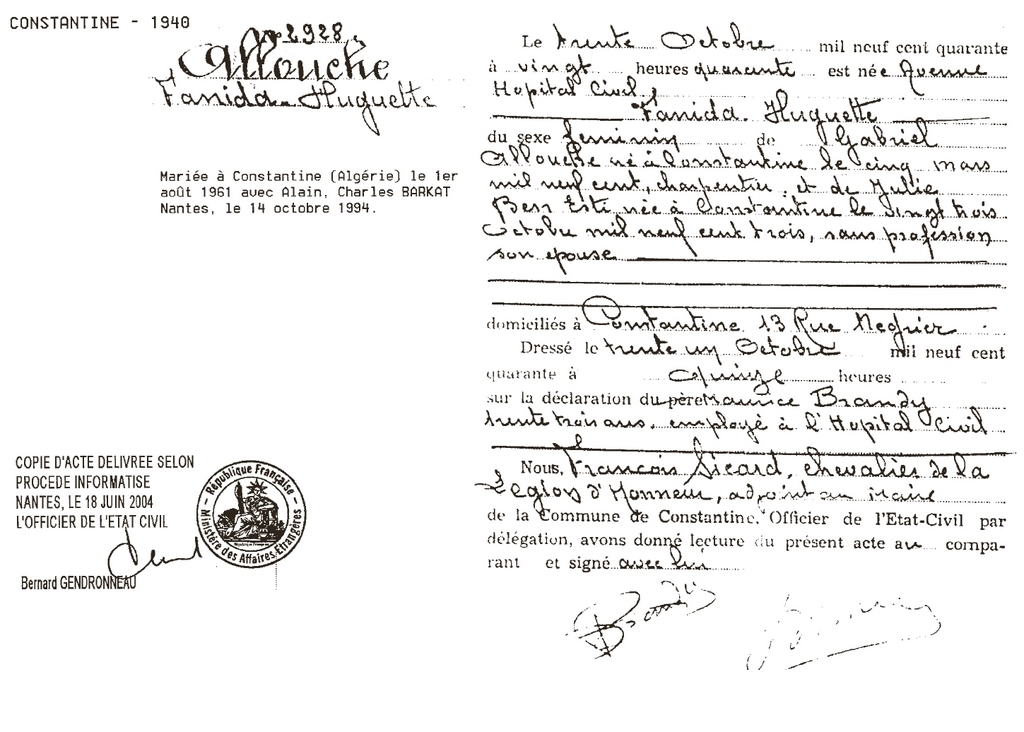 CONSTANTINE - 1940
N° 2928
Allouche
Fanida Huguette
Mariée à Constantine (Algérie) le 1er
août 1961 avec Alain, Charles BARKAT
Nantes, le 14 octobre 1994.
COPIE D'ACTE DELIVREE SELON
PROCEDE INFORMATISE
NANTES, LE 18 JUIN 2004
L'OFFICIER DE L'ETAT CIVIL
Bernard GENDRONNEAU
République Française
Ministère des Affaires Etrangères
Le trente Octobre mil neuf cent quarante
à vingt heures quarante est née Avenue
Hopital Civil
Fanida Huguette
du sexe feminin de Gabriel
Allouche né à Constantine le cinq mars
mil neuf cent, charpentier, et de Julie
Ben Esti née à Constantine le vingt trois
Octobre mil neuf cent trois, sans profession
son epouse
domiciliés à Constantine 13 Rue Negrier
Dressé le trente un Octobre mil neuf cent
quarante à quinze heures
sur la déclaration du père Maurice Brandy
trente trois ans, employé à l'Hopital Civil
Nous, François Sicard, chevalier de la
Légion d'Honneur, adjoint au maire
de la Commune de Constantine, Officier de l'Etat-Civil par
délégation, avons donné lecture du présent acte au compa-
rant et signé avec lui
Brandy